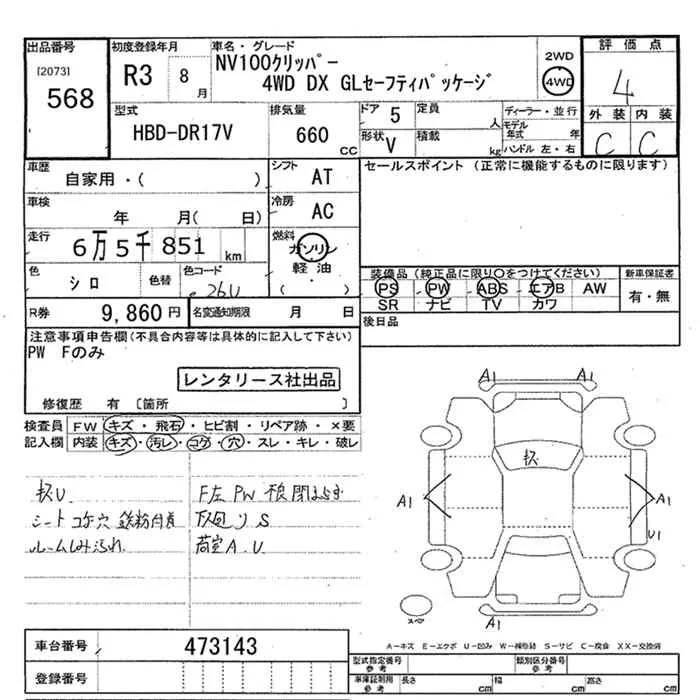 出品番号
[2073]
568
初度登録年月
R3 8月
車名・グレード
NV100クリッパー
4WD DX GLセーフティパッケージ
2WD
4WD
評価点
4
外装 内装
C C
型式
HBD-DR17V
排気量
660 CC
ドア 5
定員 人
形状 V
積載 kg
ディーラー・並行
モデル年式 年
ハンドル 左・右
車歴
自家用・( )
シフト AT
セールスポイント (正常に機能するものに限ります)
車検
年 月( 日)
冷房 AC
走行
6万5千851 km
燃料
ガソリン
軽油
・
( )
色
シロ
色替
色コード
26U
装備品(純正品に限り○をつけてください)
PS PW ABS エアB AW
SR ナビ TV カワ
新車保証書
有・無
R券 9,860円
名変通知期限 月 日
後日品
注意事項申告欄(不具合内容等は具体的に記入して下さい)
PW Fのみ
レンタリース社出品
修復歴 有 [箇所 ]
検査員記入欄
FW キズ・飛石・ヒビ割・リペア跡・×要
内装 キズ・汚レ・コゲ・穴・スレ・キレ・破レ
キズU
シート コゲ穴 鉄粉付着
ルームしみ汚れ
F左 PW
下回り S
荷室A.U
A1 A1
キズ
A1 A1
U1
A1
スペア
A=キズ E=エクボ U=凹み W=補修跡 S=サビ C=腐食 XX=交換済
車台番号 473143
登録番号
型式指定番号 参考
類別区分番号 参考
車庫証明用 参考
長さ cm 幅 cm 高さ cm